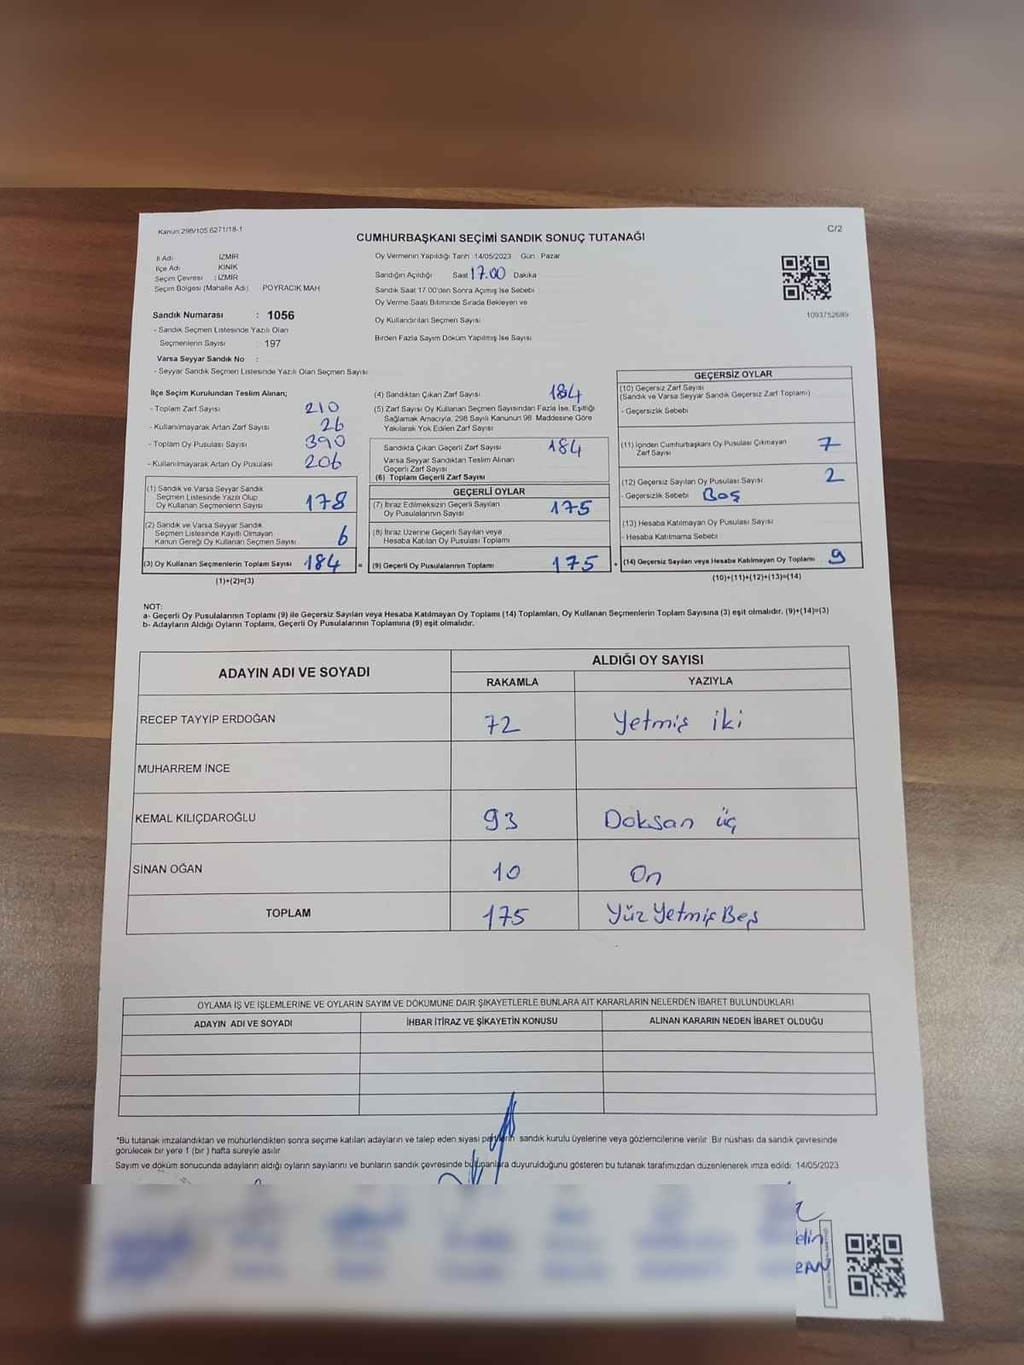 Kanun 298/105 6271/18-1
C/2
CUMHURBAŞKANI SEÇİMİ SANDIK SONUÇ TUTANAĞI
İl Adı : İZMİR
İlçe Adı : KINIK
Seçim Çevresi : İZMİR
Seçim Bölgesi (Mahalle Adı) POYRACIK MAH
Sandık Numarası : 1056
- Sandık Seçmen Listesinde Yazılı Olan
Seçmenlerin Sayısı : 197
Varsa Seyyar Sandık No :
- Seyyar Sandık Seçmen Listesinde Yazılı Olan Seçmen Sayısı
Oy Vermenin Yapıldığı Tarih 14/05/2023 Gün Pazar
Sandığın Açıldığı Saat 17.00 Dakika
Sandık Saat 17.00'den Sonra Açılmış İse Sebebi
Oy Verme Saati Bitiminde Sırada Bekleyen ve
Oy Kullandırılan Seçmen Sayısı
Birden Fazla Sayım Döküm Yapılmış İse Sayısı
1093752689
İlçe Seçim Kurulundan Teslim Alınan;
- Toplam Zarf Sayısı 210
- Kullanılmayarak Artan Zarf Sayısı 26
- Toplam Oy Pusulası Sayısı 390
- Kullanılmayarak Artan Oy Pusulası 206
(1) Sandık ve Varsa Seyyar Sandık
Seçmen Listesinde Yazılı Olup
Oy Kullanan Seçmenlerin Sayısı 178
(2) Sandık ve Varsa Seyyar Sandık
Seçmen Listesinde Kayıtlı Olmayan
Kanun Gereği Oy Kullanan Seçmen Sayısı 6
(3) Oy Kullanan Seçmenlerin Toplam Sayısı 184 =
(1)+(2)=(3)
(4) Sandıktan Çıkan Zarf Sayısı 184
(5) Zarf Sayısı Oy Kullanan Seçmen Sayısından Fazla İse, Eşitliği
Sağlamak Amacıyla, 298 Sayılı Kanunun 98. Maddesine Göre
Yakılarak Yok Edilen Zarf Sayısı
Sandıkta Çıkan Geçerli Zarf Sayısı 184
Varsa Seyyar Sandıktan Teslim Alınan
Geçerli Zarf Sayısı
(6) Toplam Geçerli Zarf Sayısı
GEÇERLİ OYLAR
(7) İtiraz Edilmeksizin Geçerli Sayılan
Oy Pusulalarının Sayısı 175
(8) İtiraz Üzerine Geçerli Sayılan veya
Hesaba Katılan Oy Pusulası Toplamı
(9) Geçerli Oy Pusulalarının Toplamı 175 +
GEÇERSİZ OYLAR
(10) Geçersiz Zarf Sayısı
(Sandık ve Varsa Seyyar Sandık Geçersiz Zarf Toplamı)
- Geçersizlik Sebebi
(11) İçinden Cumhurbaşkanı Oy Pusulası Çıkmayan
Zarf Sayısı 7
(12) Geçersiz Sayılan Oy Pusulası Sayısı 2
- Geçersizlik Sebebi Boş
(13) Hesaba Katılmayan Oy Pusulası Sayısı
- Hesaba Katılmama Sebebi
(14) Geçersiz Sayılan veya Hesaba Katılmayan Oy Toplamı 9
(10)+(11)+(12)+(13)=(14)
NOT:
a- Geçerli Oy Pusulalarının Toplamı (9) ile Geçersiz Sayılan veya Hesaba Katılmayan Oy Toplamı (14) Toplamları, Oy Kullanan Seçmenlerin Toplam Sayısına (3) eşit olmalıdır. (9)+(14)=(3)
b- Adayların Aldığı Oyların Toplamı, Geçerli Oy Pusulalarının Toplamına (9) eşit olmalıdır.
ADAYIN ADI VE SOYADI
ALDIĞI OY SAYISI
RAKAMLA YAZIYLA
RECEP TAYYİP ERDOĞAN 72 Yetmiş iki
MUHARREM İNCE
KEMAL KILIÇDAROĞLU 93 Doksan üç
SİNAN OĞAN 10 On
TOPLAM 175 Yüz Yetmiş Beş
OYLAMA İŞ VE İŞLEMLERİNE VE OYLARIN SAYIM VE DÖKÜMÜNE DAİR ŞİKAYETLERLE BUNLARA AİT KARARLARIN NELERDEN İBARET BULUNDUKLARI
ADAYIN ADI VE SOYADI İHBAR İTİRAZ VE ŞİKAYETİN KONUSU ALINAN KARARIN NEDEN İBARET OLDUĞU
*Bu tutanak imzalandıktan ve mühürlendikten sonra seçime katılan adayların ve talep eden siyasi partilerin sandık kurulu üyelerine veya gözlemcilerine verilir. Bir nüshası da sandık çevresinde
görülecek bir yere 1 (bir) hafta süreyle asılır
Sayım ve döküm sonucunda adayların aldığı oyların sayılarını ve bunların sandık çevresinde bulunanlara duyurulduğunu gösteren bu tutanak tarafımızdan düzenlenerek imza edildi. 14/05/2023